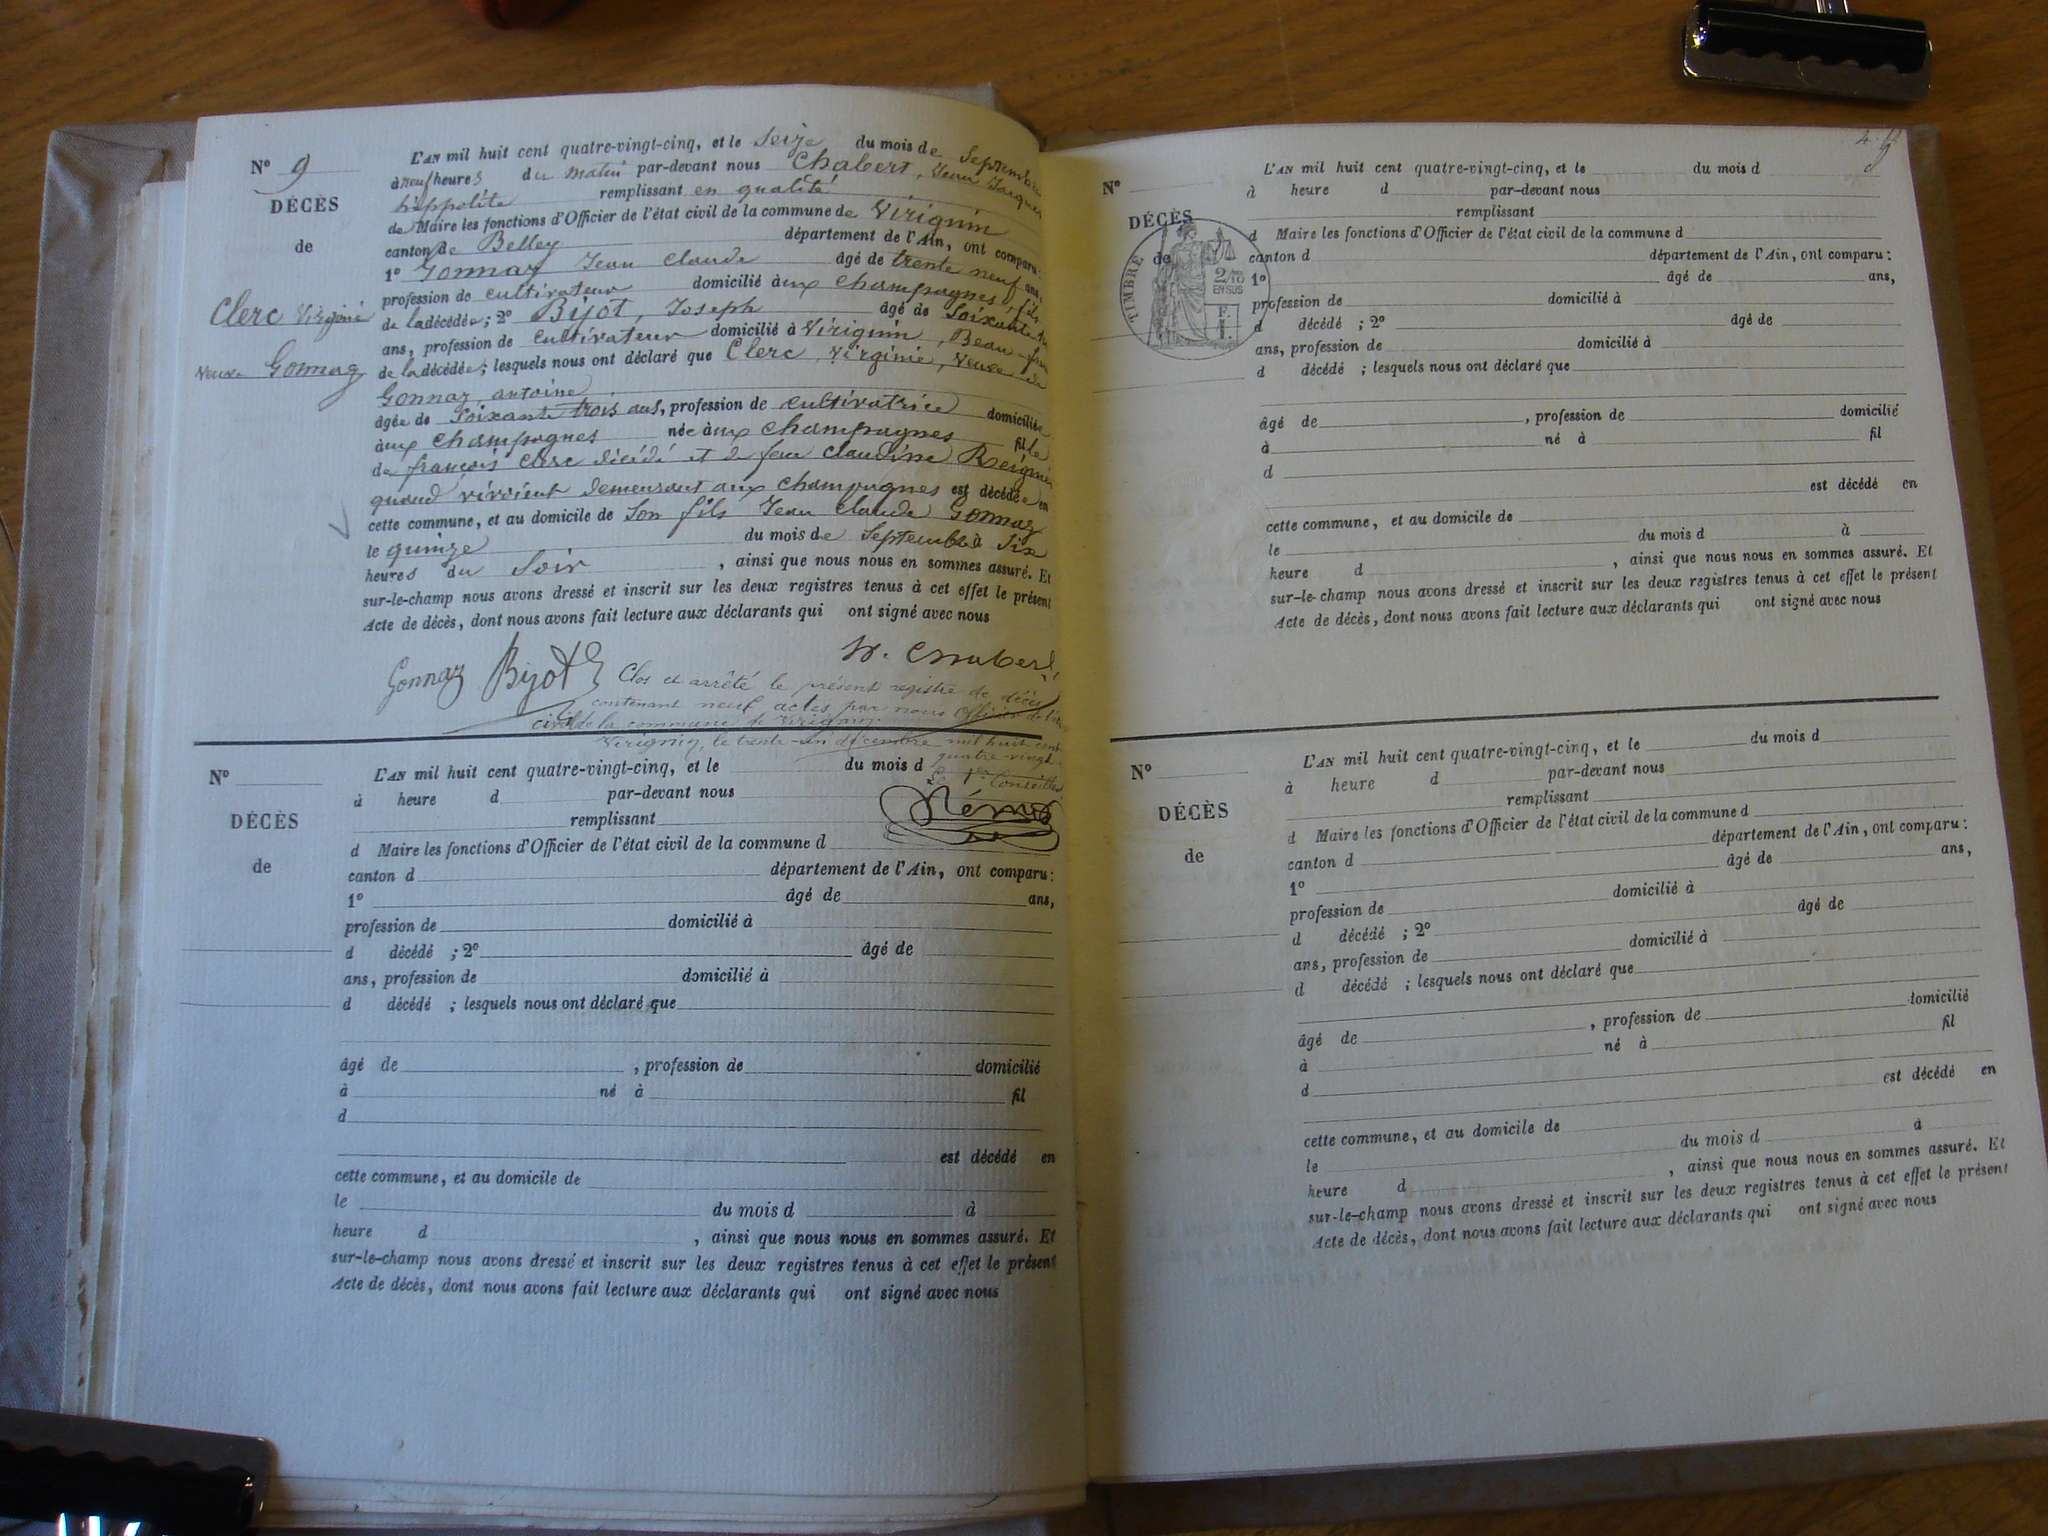 N° 9
DÉCÈS
de
Clerc Virginie
Veuve Gonnaz
L'AN mil huit cent quatre-vingt-cinq, et le Seize du mois de Septembre
à neuf heures du matin par-devant nous Chabert, Jean Jacques
hippolite remplissant en qualité
de Maire les fonctions d'Officier de l'état civil de la commune de Virignin
canton de Belley département de l'Ain, ont comparu:
1° Gonnaz Jean Claude âgé de trente neuf ans,
profession de cultivateur domicilié aux champagnes, fils
de la décédée; 2° Bijot, Joseph âgé de Soixante
ans, profession de cultivateur domicilié à Virignin, Beau-frère
de la décédée; lesquels nous ont déclaré que Clerc Virginie, Veuve de
Gonnaz, antoine
âgée de Soixante trois ans, profession de cultivatrice domiciliée
aux champagnes née aux champagnes fille
de françois Clerc décédé et de feue claudine
quand vivaient demeurant aux champagnes est décédée en
cette commune, et au domicile de Son fils Jean Claude Gonnaz
le quinze du mois de Septembre à Six
heures du Soir, ainsi que nous nous en sommes assuré. Et
sur-le-champ nous avons dressé et inscrit sur les deux registres tenus à cet effet le présent
Acte de décès, dont nous avons fait lecture aux déclarants qui ont signé avec nous
Gonnaz Bijot H. Chabert
Clos et arrêté le présent registre de décès
contenant neuf actes par nous Officier de l'état
civil de la commune de Virignin.
Virignin, le trente-un décembre mil huit cent
quatre-vingt
Conseiller
N°
DÉCÈS
de
L'AN mil huit cent quatre-vingt-cinq, et le du mois d
à heure d par-devant nous
remplissant
d Maire les fonctions d'Officier de l'état civil de la commune d
canton d département de l'Ain, ont comparu:
1° âgé de ans,
profession de domicilié à
d décédé ; 2° âgé de
ans, profession de domicilié à
d décédé ; lesquels nous ont déclaré que
âgé de , profession de domicilié
à né à fil
d
est décédé en
cette commune, et au domicile de
le du mois d à
heure d , ainsi que nous nous en sommes assuré. Et
sur-le-champ nous avons dressé et inscrit sur les deux registres tenus à cet effet le présent
Acte de décès, dont nous avons fait lecture aux déclarants qui ont signé avec nous
N°
DÉCÈS
de
TIMBRE
2/10
EN SUS
F.
1.
L'AN mil huit cent quatre-vingt-cinq, et le du mois d
à heure d par-devant nous
remplissant
d Maire les fonctions d'Officier de l'état civil de la commune d
canton d département de l'Ain, ont comparu:
1° âgé de ans,
profession de domicilié à
d décédé ; 2° âgé de
ans, profession de domicilié à
d décédé ; lesquels nous ont déclaré que
âgé de , profession de domicilié
à né à fil
d
est décédé en
cette commune, et au domicile de
le du mois d à
heure d , ainsi que nous nous en sommes assuré. Et
sur-le-champ nous avons dressé et inscrit sur les deux registres tenus à cet effet le présent
Acte de décès, dont nous avons fait lecture aux déclarants qui ont signé avec nous
N°
DÉCÈS
de
L'AN mil huit cent quatre-vingt-cinq, et le du mois d
à heure d par-devant nous
remplissant
d Maire les fonctions d'Officier de l'état civil de la commune d
canton d département de l'Ain, ont comparu:
1° âgé de ans,
profession de domicilié à
d décédé ; 2° âgé de
ans, profession de domicilié à
d décédé ; lesquels nous ont déclaré que
âgé de , profession de domicilié
à né à fil
d
est décédé en
cette commune, et au domicile de
le du mois d à
heure d , ainsi que nous nous en sommes assuré. Et
sur-le-champ nous avons dressé et inscrit sur les deux registres tenus à cet effet le présent
Acte de décès, dont nous avons fait lecture aux déclarants qui ont signé avec nous